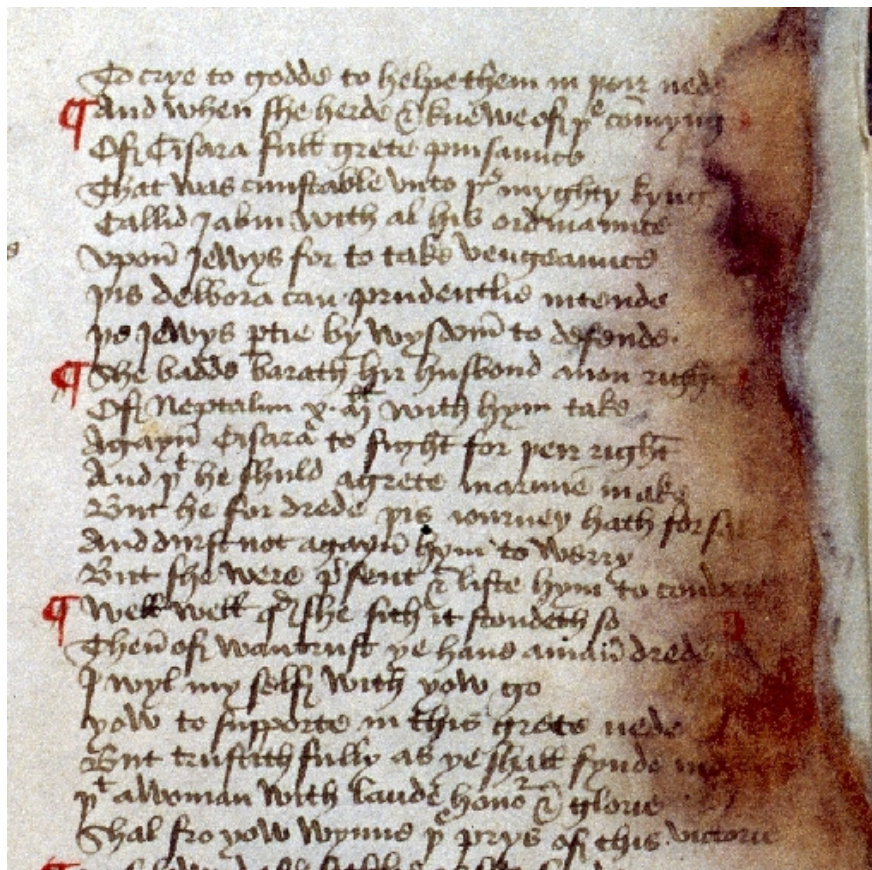 To crye to godde to helpe them in þeir nede
And when she herde & knewe of þe comyng
Of Cisara full grete puisaunce
That was cunstable vnto þe myghty kyng
Callid Jabin with al his ordinaunce
Vpon Jewys for to take vengeaunce
þis delbora can prudentlie intende
þe Jewys ptie by wysdom to defende
She badde barath hir husbond anon right
Of Neptalim x. Ml with hym take
Agayn Cisara to fight for þeir right
And þt he shuld a grete maraue make
But he for drede þis iourney hath
And durst not agayn hym to werry
But she were psent & liste hym to
Well well qd she sith it stondeth so
Then of wantrust ye haue a maner drede
I wyl my self with yow go
yow to supporte in this grete nede
But trustith fully as ye shall fynde
þt a woman with laude honor & glorie
Shal fro yow wynne þe prys of this victorie